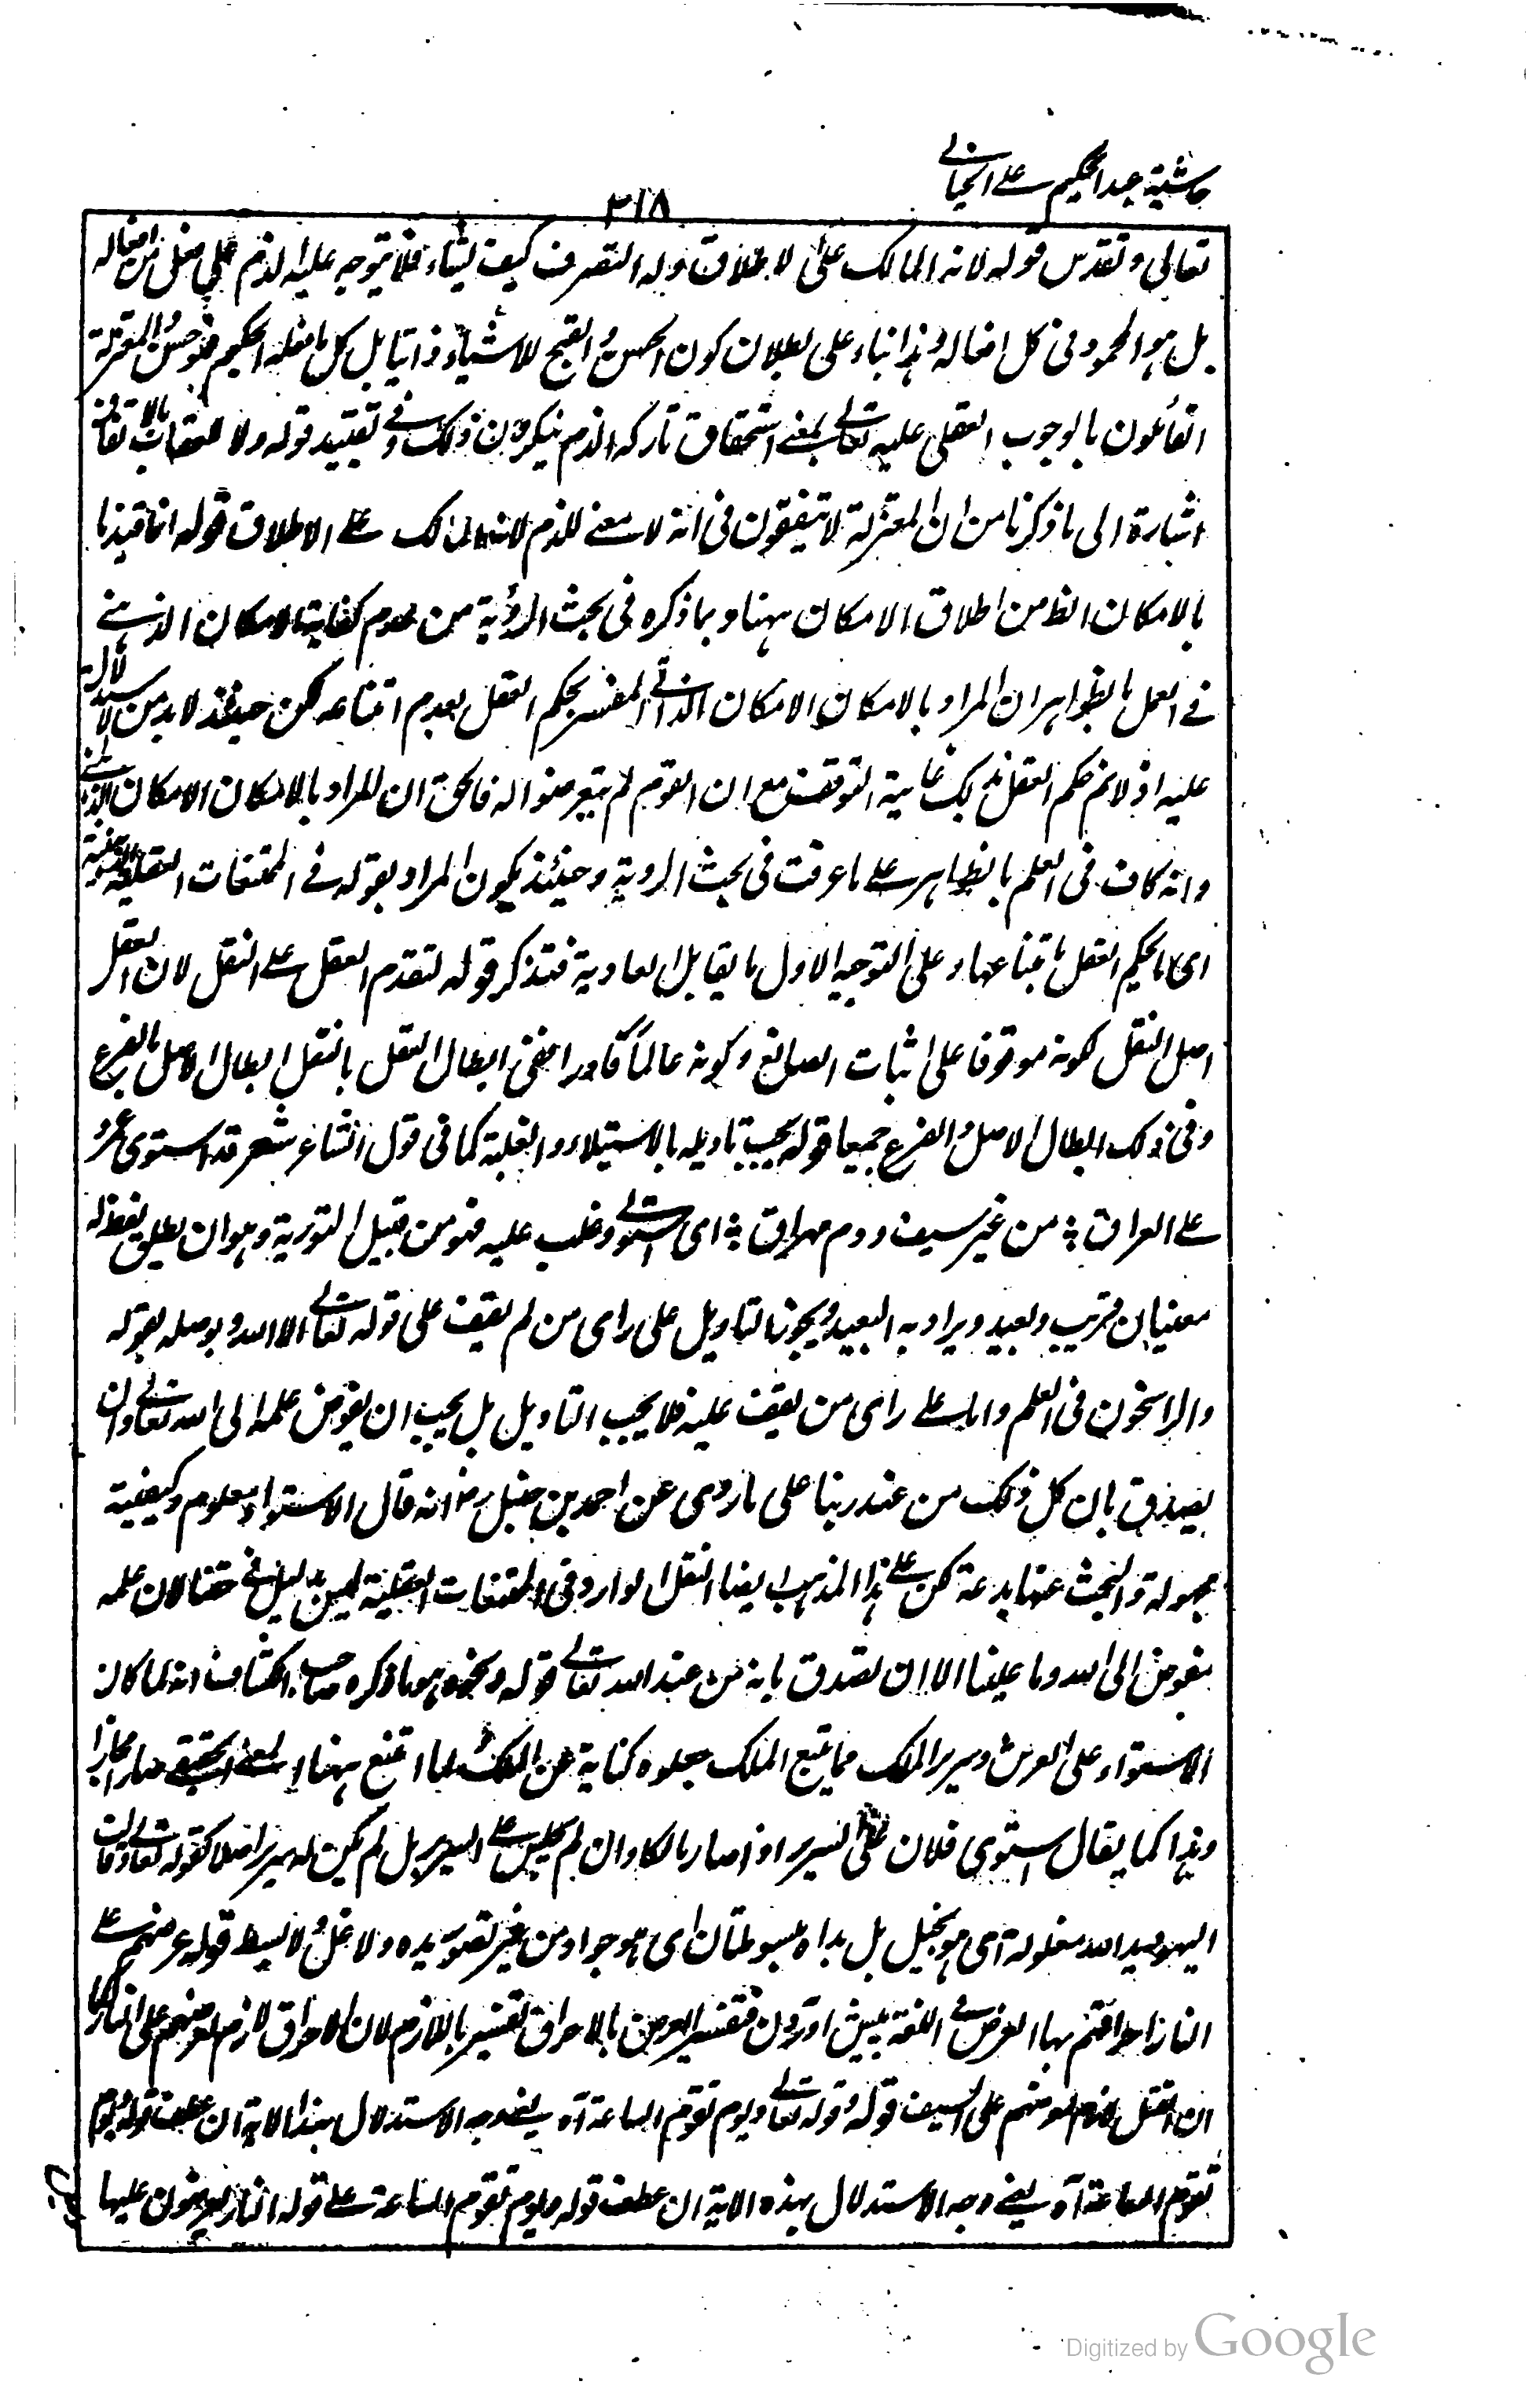 حاشية عبد الحكيم على الخيالى
٣١٨
تعالى وتقدس قوله لانه المالك على الاطلاق وله التصرف كيف يشاء فلا يتوجه عليه الذم على فعل من افعاله
بل هو المحمود فى كل افعاله وهذا بناء على بطلان كون الحسن والقبح للاشياء ذاتيا بل كل ما فعله الحكيم فهو حسن والمعتزلة
القائلون بالوجوب العقلى عليه تعالى بمعنى استحقاق تاركه الذم ينكرون ذلك وفى تقييد قوله ولا العقاب بالاتفاق
اشارة الى ما ذكرنا من ان المعتزلة لا يتفقون فى انه لا معنى للذم لانه المالك على الاطلاق قوله انما قيدنا
بالامكان الظ من اطلاق الامكان ههنا وبما ذكره فى بحث الرؤية من عدم كفاية الامكان الذهنى
فى العمل بالظواهر ان المراد بالامكان الامكان الذاتى المفسر بحكم العقل بعدم امتناعه لكن حينئذ لا بد من الاستدلال
عليه اذ لا نم حكم العقل بذلك غاية التوقف مع ان القوم لم يتعرضوا له فالحق ان المراد بالامكان الامكان الذهنى
وانه كاف فى العلم بالظاهر على ما عرفت فى بحث الرؤية وحينئذ يكون المراد بقوله فى الممتنعات العقلية
اى ما يحكم العقل بامتناعها وعلى التوجيه الاول ما يقابل العادية فتذكر قوله لتقدم العقل على النقل لان العقل
اصل النقل لكونه موقوفا على اثبات الصانع وكونه عالما قادرا ففى ابطال العقل بالنقل ابطال الاصل بالفرع
وفى ذلك ابطال الاصل والفرع جميعا قوله يجب تاويله بالاستيلاء والغلبة كما فى قول الشاعر شعر قد استوى عمرو
على العراق ؞ من غير سيف ودم مهراق ؞ اى استولى وغلب عليه فهو من قبيل التورية وهو ان يطلق لفظ له
معنيان قريب وبعيد ويراد به البعيد ويجوز التاويل على راى من لم يقف على قوله تعالى الا الله ويوصله بقوله
والراسخون فى العلم واما على راى من يقف عليه فلا يجب التاويل بل يجب ان يفوض علمه الى الله تعالى وان
يصدق بان كل ذلك من عند ربنا على ما روى عن احمد بن حنبل رض انه قال الاستواء معلوم وكيفية
مجهولة والبحث عنها بدعة لكن على هذا المذهب ايضا النقل الوارد فى الممتنعات العقلية ليس بدليل فى حقنا لان علمه
مفوض الى الله وما علينا الا ان نصدق بانه من عند الله تعالى قوله ونحوه هو ما ذكره صاحب الكشاف انه لما كان
الاستواء على العرش وسرير الملك مما يتبع الملك جعلوه كناية عن الملك ولما امتنع ههنا المعنى الحقيقى صار مجازا
وهذا كما يقال استوى فلان على السرير اذا صار مالكا وان لم يجلس على السرير بل لم يكن له سرير اصلا كقوله تعالى وقالت
اليهود يد الله مغلولة اى هو بخيل بل يداه مبسوطتان اى هو جواد من غير تصور يد ولا غل ولا بسط قوله عرضهم على
النار احراقهم بها العرض فى اللغة پيش آوردن فتفسير العرض بالاحراق تفسير باللازم لان الاحراق لازم لعرضهم على النار كما
ان القتل لازم لعرضهم على السيف قوله وقوله تعالى ويوم تقوم الساعة آه يعنى وجه الاستدلال بهذا الاية ان عطف قوله ويوم
تقوم الساعة آه يعنى وجه الاستدلال بهذه الاية ان عطف قوله ويوم تقوم الساعة على قوله النار يعرضون عليها
Digitized by Google